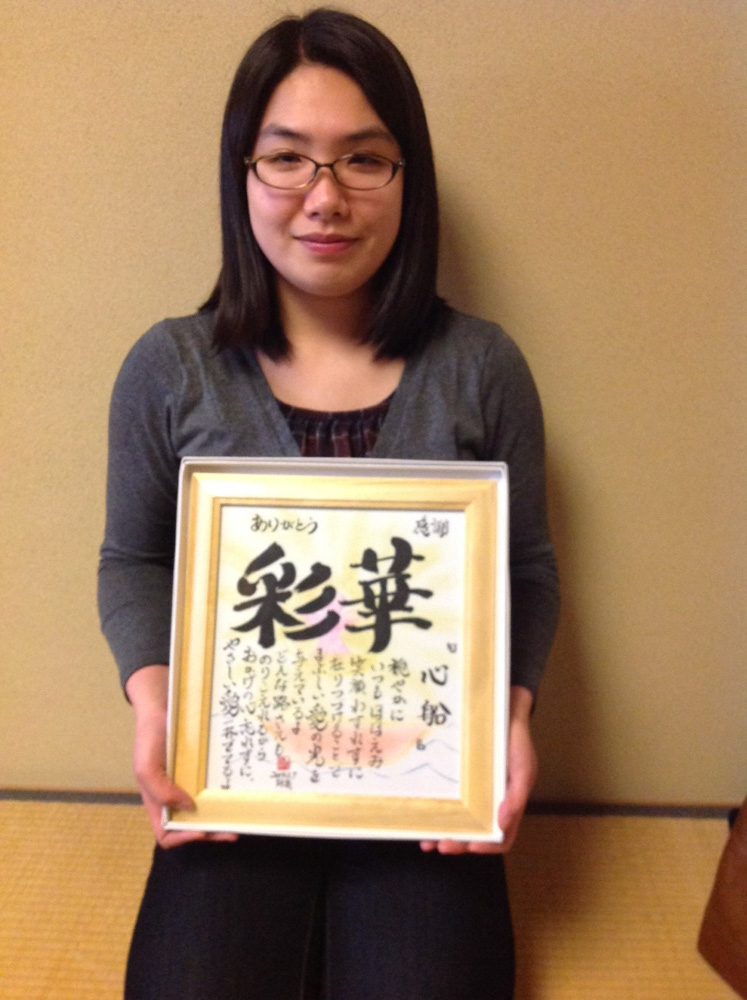 ありがとう 感謝
彩華
「心船」
穏やかに
いつもほほえみ
笑顔わすれずに
在りつづけることで
まぶしい愛の光を
与えているよ
どんな路さえも
のりこえれるから
おかげの心忘れずに、
やさしい愛